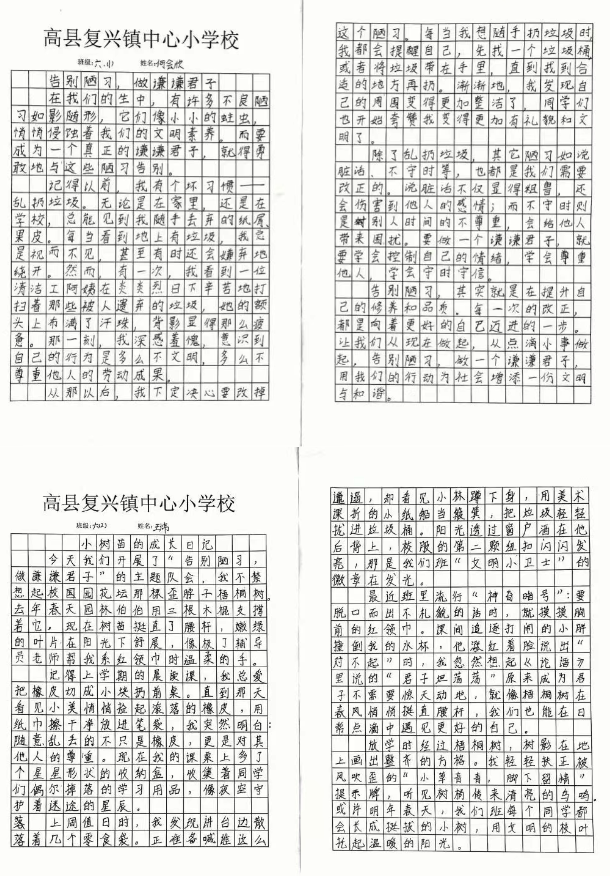 高县复兴镇中心小学校
班级:六.(1) 姓名:
告别陋习，做谦谦君子
在我们的生中，有许多不良陋
习如影随形，它们像小小的蛀虫，
悄悄侵蚀着我们的文明素养。而要
成为一个真正的谦谦君子，就得勇
敢地与这些陋习告别。
记得以前，我有个坏习惯——
乱扔垃圾。无论是在家里，还是在
学校，总能见到我随手丢弃的纸屑、
果皮。每当看到地上有垃圾，我总
是视而不见，甚至有时还会嫌弃地
绕开。然而，有一次，我看到一位
清洁工阿姨在炎炎烈日下辛苦地打
扫着那些被人遗弃的垃圾，她的额
头上布满了汗珠，背影显得那么疲
惫。那一刻，我深感羞愧，意识到
自己的行为是多么不文明，多么不
尊重他人的劳动成果。
从那以后，我下定决心要改掉
这个陋习。每当我想随手扔垃圾时，
我都会提醒自己，先找一个垃圾桶，
或者将垃圾带在手里，直到找到合
适的地方再扔。渐渐地，我发现自
己的周围变得更加整洁了，同学们
也开始夸赞我变得更加有礼貌和文
明了。
除了乱扔垃圾，其它陋习如说
脏话、不守时等，也都是我们需要
改正的。说脏话不仅显得粗鲁，还
会伤害到他人的感情；而不守时则
是对别人时间的不尊重，会给他人
带来困扰。要做一个谦谦君子，就
要学会控制自己的情绪，学会尊重
他人，学会守时守信。
告别陋习，其实就是在提升自
己的修养和品质。每一次的改正，
都是向着更好的自己迈进的一步。
让我们从现在做起，从点滴小事做
起，告别陋习，做一个谦谦君子，
用我们的行动为社会增添一份文明
与和谐。
高县复兴镇中心小学校
班级:六(2) 姓名:
小树苗的成长日记
今天我们开展了“告别陋习，
做谦谦君子”的主题队会，我不禁
想起校园园花坛那棵歪脖子梧桐树。
去年春天园林伯伯用三根木棍支撑
着它，现在树苗挺直了腰杆，嫩绿
的叶片在阳光下舒展，像极了辅导
员老师替我系红领巾时温柔的手。
记得上学期的晨读课，我总爱
把橡皮切成小块扔着菜。直到那天
看见小美悄悄捡起滚落的橡皮，用
纸巾擦干净放进笔袋，我突然明白：
随意乱丢的不只是橡皮，更是对其
他人的尊重。现在我的课桌上多了
个星星形状的收纳盒，收集着同学
们偶尔掉落的学习用品，像夜空守
护着迷途的星辰。
上周值日时，我发现讲台边散
落着几个零食袋。正准备喊谁这么
邋遢，却看见小林蹲下身，用美术
课折的小纸船当簸箕，把垃圾轻轻
拢进垃圾桶。阳光透过窗户洒在他
后背上，校服的第二颗纽扣闪闪发
亮，那是我们班“文明小卫士”的
徽章在发光。
最近班里流行“神奇暗号”：要
脱口而出不礼貌的话时，就摸摸胸
前的红领巾。课间追逐打闹的小胖
撞倒我的水杯，他涨红着脸说出“
对不起”时，我忽然想起《论语》
里说的“君子坦荡荡”原来成为君
子不需要惊天动地，就像梧桐树在
春风悄悄挺直腰杆，我们也能在日
常点滴中遇见更好的自己。
放学时经过梧桐树，树影在地
上画出整齐的方格。我轻轻扶正被
风吹歪的“小草青青，脚下留情”
提示牌，听见树梢传来清亮的鸟鸣。
或许明年春天，我们班每个同学都
会长成挺拔的小树，用文明的枝叶
托起温暖的阳光。